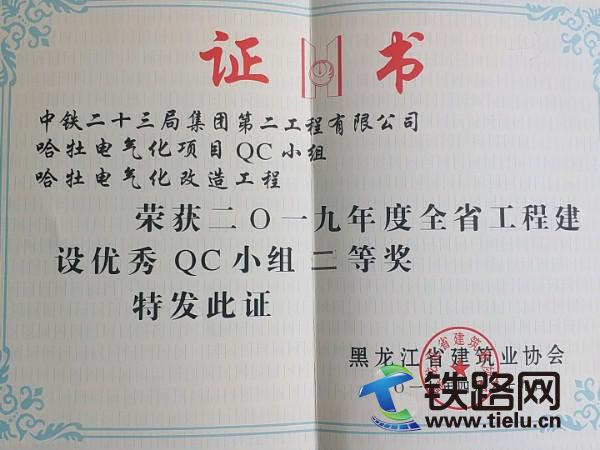 证书
中铁二十三局集团第二工程有限公司
哈牡电气化项目QC小组
哈牡电气化改造工程
荣获二〇一九年度全省工程建
设优秀QC小组二等奖
特发此证
黑龙江省建筑业协会
铁路网
www.tielu.cn